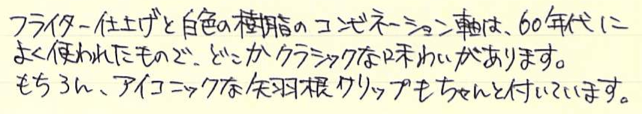 フライター仕上げと白色の樹脂のコンビネーション軸は、60年代に
よく使われたもので、どこかクラシックな味わいがあります。
もちろん、アイコニックな矢羽根クリップもちゃんと付いています。